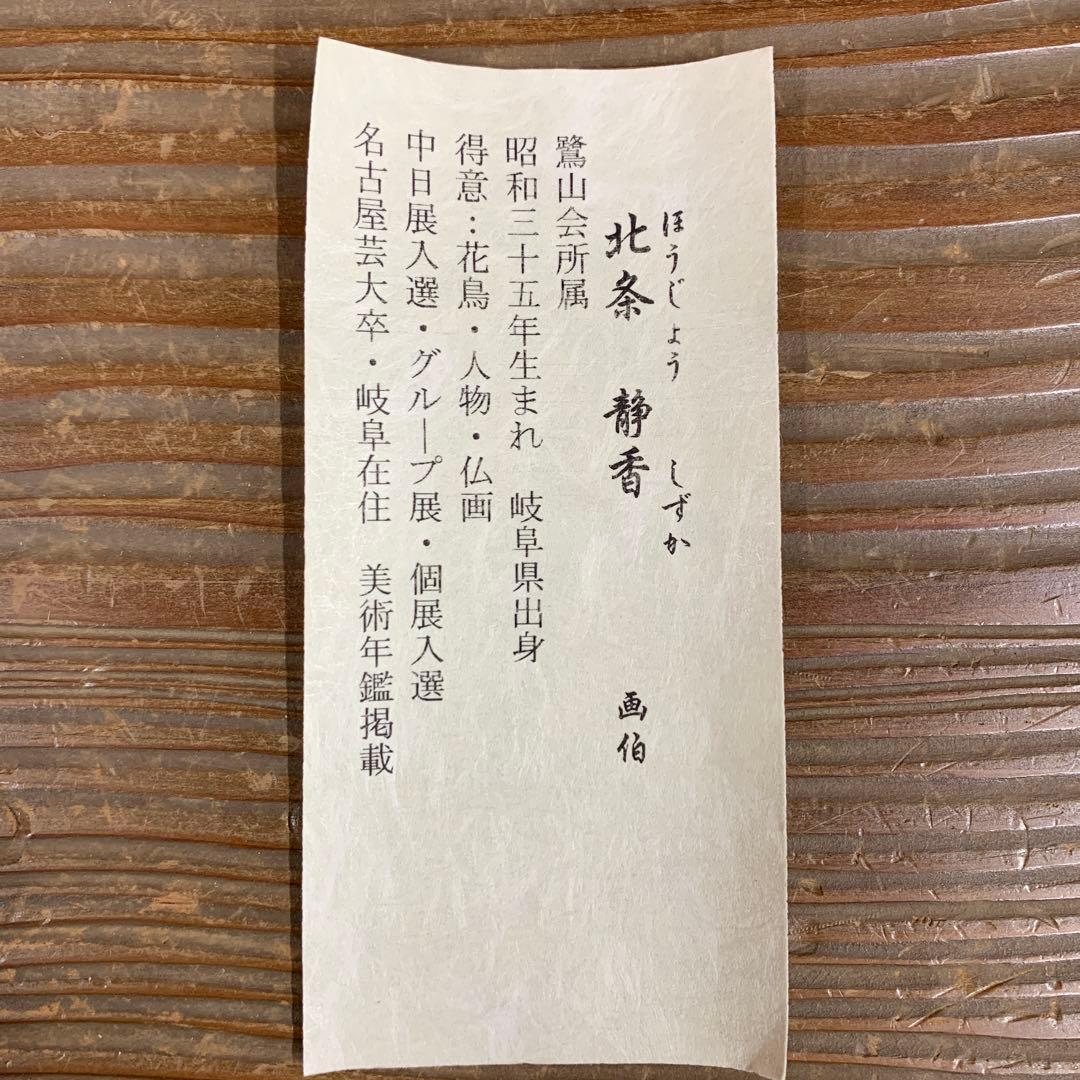 ほうじょう しずか
北条 静香 画伯
鷺山会所属
昭和三十五年生まれ 岐阜県出身
得意：花鳥・人物・仏画
中日展入選・グループ展・個展入選
名古屋芸大卒・岐阜在住 美術年鑑掲載